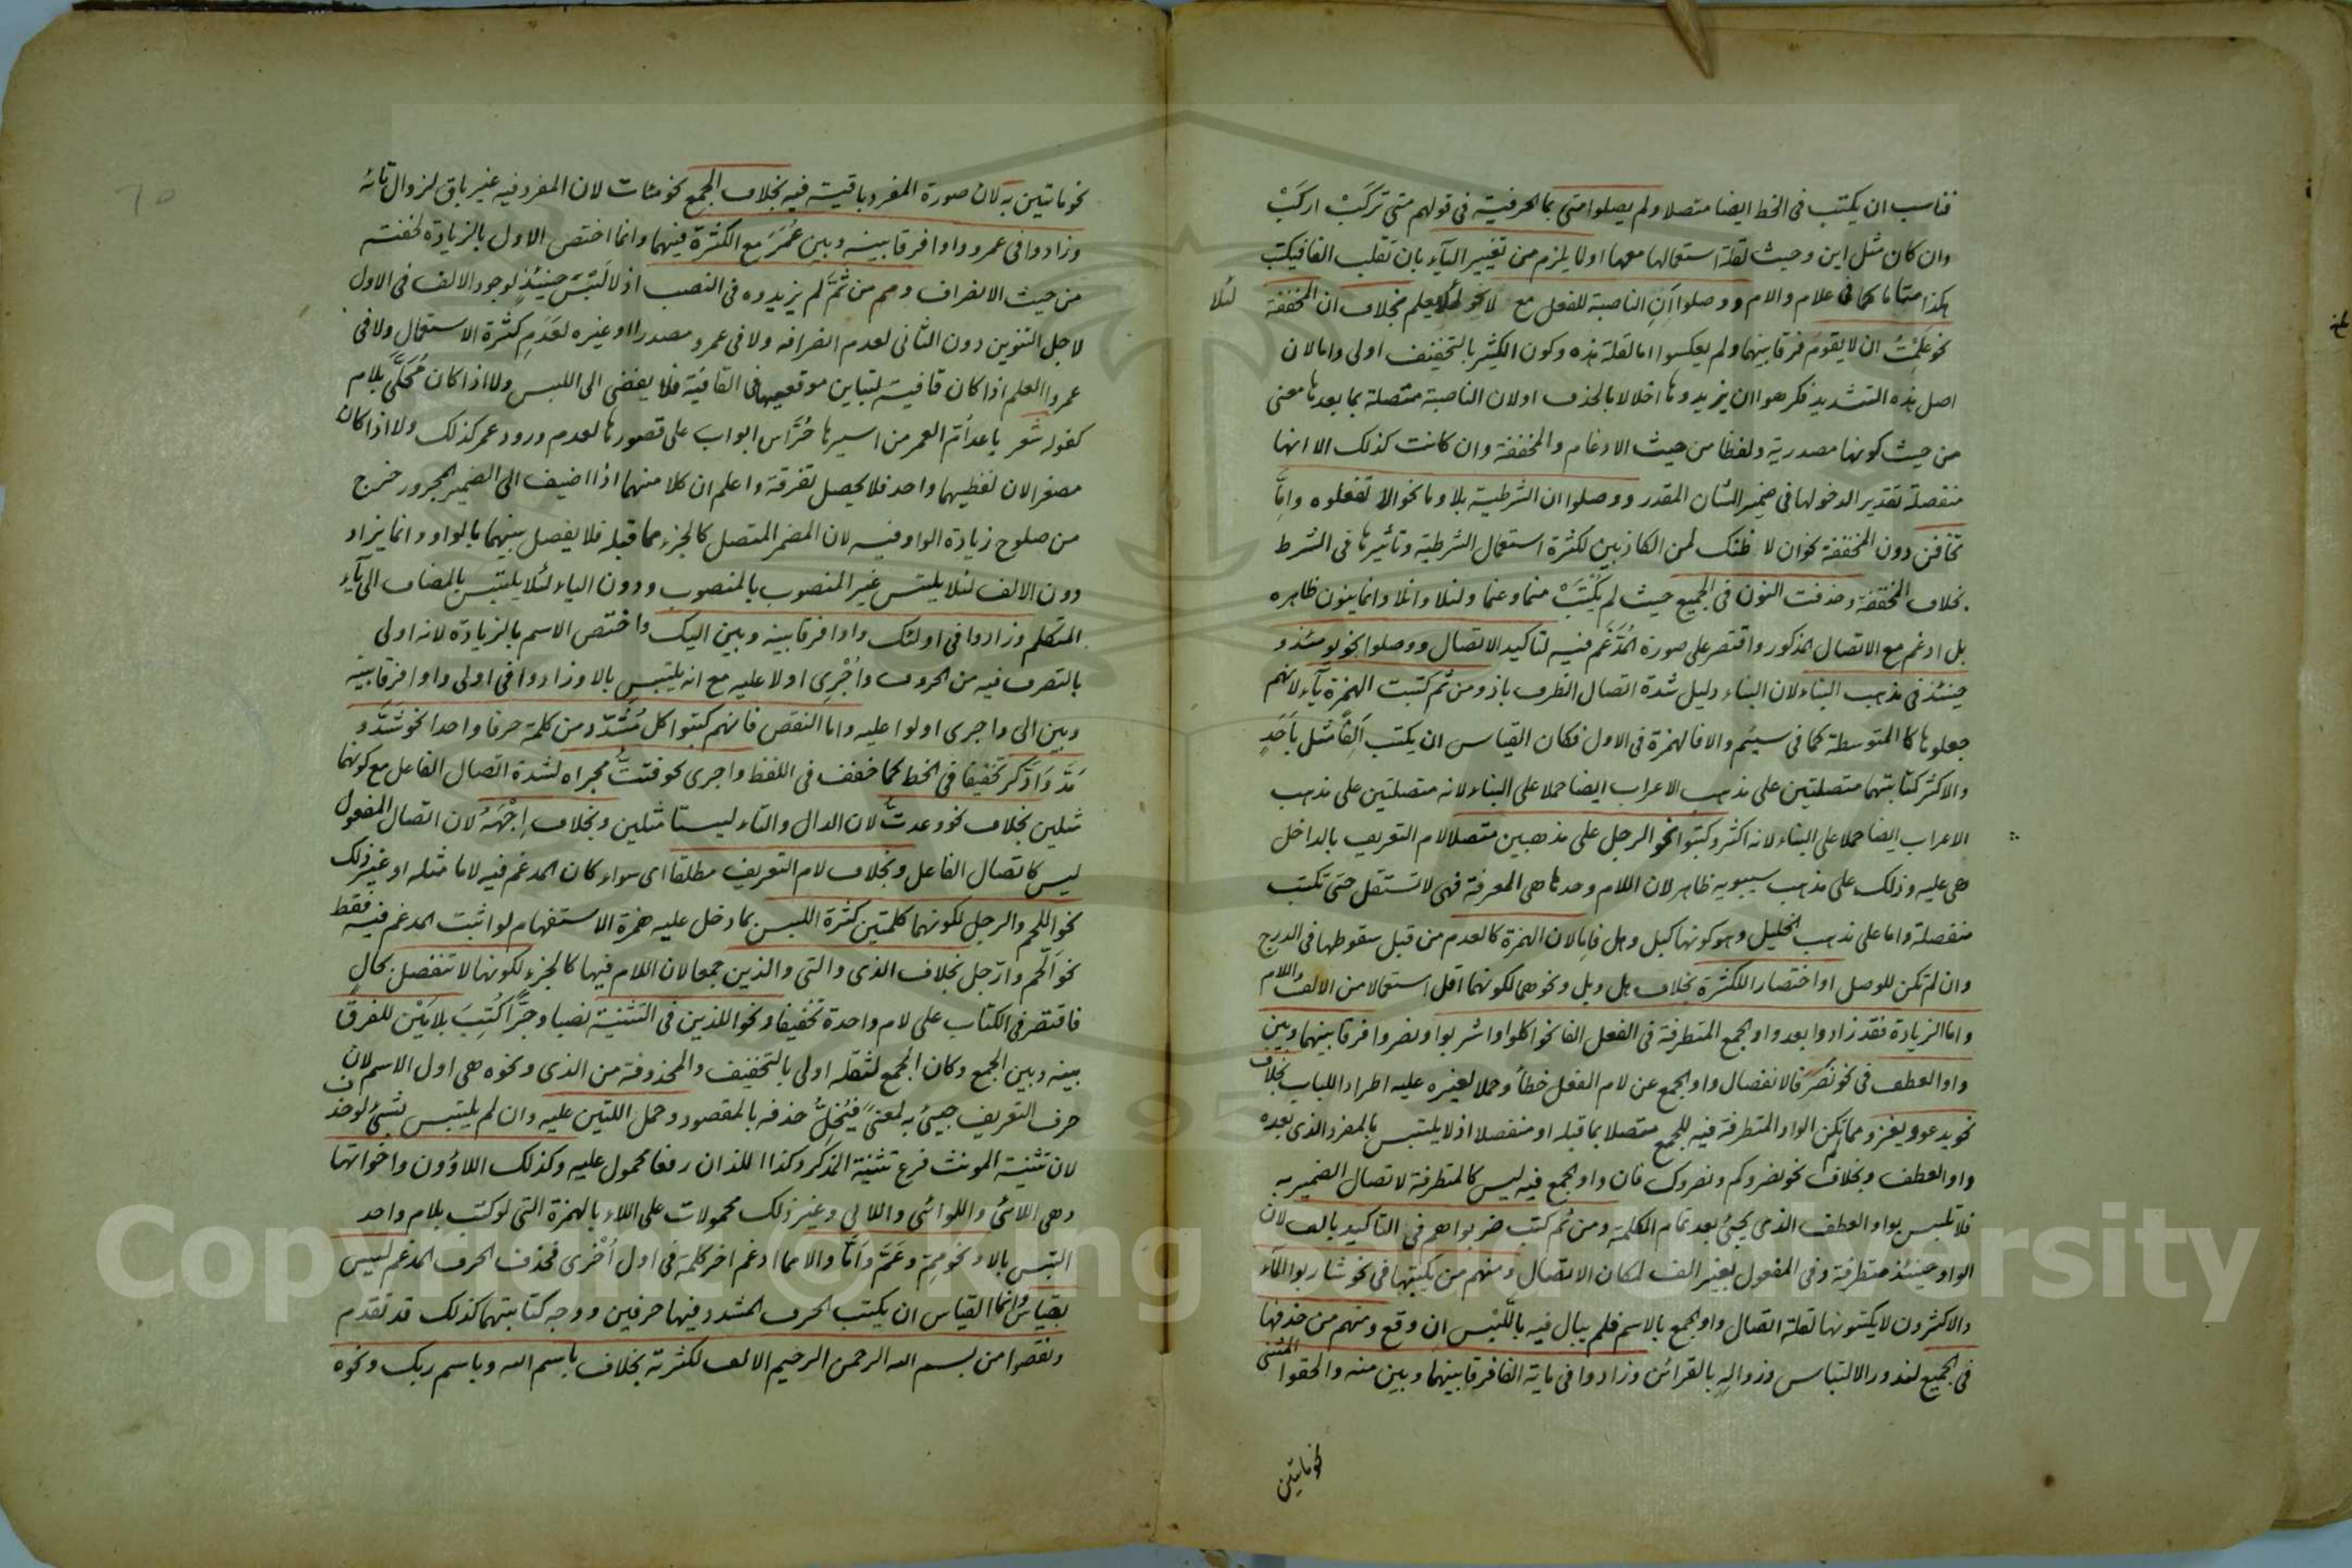 فناسب ان يكتب فى الخط ايضا متصلا ولم يصلوا متى بما الحرفية فى قولهم متى تركب اركب
وان كان مثل اين وحيث لقلة استعمالها معها او لما يلزم من تغيير الياء بان تقلب الفا فيكتب
هكذا متاما كما فى علام والام ووصلوا ان الناصبة للفعل مع لا نحو لئلا يعلم بخلاف ان المخففة
لئلا
نحو علمت ان لا يقوم فرقا بينهما ولم يعكسوا اما لقلة هذه وكون الكثير بالتخفيف اولى واما لان
اصل هذه التشديد فكرهوا ان يزيدوها اخلالا بالحذف او لان الناصبة متصلة بما بعدها معنى
من حيث كونها مصدرية ولفظا من حيث الادغام والمخففة وان كانت كذلك الا انها
منفصلة تقدير الدخولها فى ضمير الشان المقدر ووصلوا ان الشرطية بلا وما نحو الا تفعلوه واما
تخافن دون المخففة نحو ان لا ظنك لمن الكاذبين لكثرة استعمال الشرطية وتأثيرها فى الشرط
بخلاف المخففة وحذفت النون فى الجميع حيث لم يكتب منما وعنما ولنلا وانلا وانما بنون ظاهره
بل ادغم مع الاتصال المذكور واقتصر على صورة المدغم فيه لتاكيد الاتصال ووصلوا نحو يومئذ و
حينئذ فى مذهب البناء لان البناء دليل شدة اتصال الظرف باذ ومن ثم كتبت الهمزة ياء لانهم
جعلوها كالمتوسطة كما فى سيئم والا فالهمزة فى الاول فكان القياس ان يكتب الفا مثل باحد
والاكثر كتابتهما متصلتين على مذهب الاعراب ايضا حملا على البناء لانه متصلتين على مذهب
الاعراب ايضا حملا على البناء لانه اكثر وكتبوا نحو الرجل على مذهبين متصلا لام التعريف بالداخل
هى عليه وذلك على مذهب سيبويه ظاهر لان اللام وحدها هى المعرفة فهى لا تستقل حتى تكتب
منفصلة واما على مذهب الخليل وهو كونها كبل وهل فاما لان الهمزة كالعدم من قبل سقوطها فى الدرج
وان لم تكن للوصل او اختصارا للكثرة بخلاف هل وبل ونحوهما لكونهما اقل استعمالا من الالف واللام
واما الزيادة فقد زادوا بعد واو الجمع المتطرفة فى الفعل الفا نحو اكلوا واشربوا ونصروا فرقا بينهما وبين
واو العطف فى نحو نصر فالانفصال واو الجمع عن لام الفعل خطا وحملا لغيره عليه اطرادا للباب بخلاف
نحو يدعو ويغزو مما لم تكن الواو المتطرفة فيه للجمع متصلا بما قبله او منفصلا اذ لا يلتبس بالمفرد الذى بعده
واو العطف وبخلاف نحو نصروكم ونصروك فان واو الجمع فيه ليس كالمتطرفة لاتصال الضمير به
فلا تلبس بواو العطف الذى يجئ بعد تمام الكلمة ومن ثم كتب ضربوا هم فى التاكيد بالف لان
الواو حينئذ متطرفة وفى المفعول بغير الف لمكان الاتصال ومنهم من يكتبها فى نحو شاربوا الماء
والاكثرون لا يكتبونها لقلة اتصال واو الجمع بالاسم فلم يبال فيه باللبس ان وقع ومنهم من حذفها
فى الجميع لندور الالتباس وزواله بالقرائن وزادوا فى مائة الفا فرقا بينهما وبين منه والحقوا المثنى
نحو مائتين
نحو مائتين به لان صورة المفرد باقية فيه بخلاف الجمع نحو مئات لان المفرد فيه غير باق لزوال تائه
وزادوا فى عمرو واوا فرقا بينه وبين عمر مع الكثرة فيهما وانما اختص الاول بالزيادة لخفته
من حيث الانصراف ومن ثم لم يزيدوه فى النصب اذ لا لبس حينئذ لوجود الالف فى الاول
لاجل التنوين دون الثانى لعدم انصرافه ولا فى عمرو مصدرا او غيره لعدم كثرة الاستعمال ولا فى
عمرو العلم اذا كان قافية لتباين موقعيهما فى القافية فلا يفضى الى اللبس ولا اذا كان محلى بلام
كقوله شعر باعد ام العمر من اسيرها حراس ابواب على قصورها لعدم ورود عمر كذلك ولا اذا كان
مصغرا لان لفظيهما واحد فلا يحصل تفرقة واعلم ان كلا منهما اذا اضيف الى الضمير المجرور خرج
من صلوح زيادة الواو فيه لان المضمر المتصل كالجزء مما قبله فلا يفصل بينهما بالواو وانما يزاد
دون الالف لئلا يلتبس غير المنصوب بالمنصوب ودون الياء لئلا يلتبس بالمضاف الى ياء
المتكلم وزادوا فى اولئك واوا فرقا بينه وبين اليك واختص الاسم بالزيادة لانه اولى
بالتصرف فيه من الحروف واجرى اولا عليه مع انه يلتبس بالا وزادوا فى اولى واوا فرقا بينه
وبين الى واجرى اولوا عليه واما النقص فانهم كتبوا كل مشدد من كلمة حرفا واحدا نحو شد و
مد وادكر تخفيفا فى الخط كما خفف فى اللفظ واجرى نحو قتت مجراه لشدة اتصال الفاعل مع كونهما
مثلين بخلاف نحو وعدت لان الدال والتاء ليستا مثلين وبخلاف اجبهه لان اتصال المفعول
ليس كاتصال الفاعل وبخلاف لام التعريف مطلقا اى سواء كان المدغم فيه لاما مثله او غير ذلك
نحو اللحم والرجل لكونهما كلمتين كثرة اللبس بما دخل عليه همزة الاستفهام لو اثبت المدغم فيه فقط
نحو الحم وارجل بخلاف الذى والتى والذين جمعا لان اللام فيها كالجزء لكونها لا تنفصل بحال
فاقتصر فى الكتاب على لام واحدة تخفيفا ونحو اللذين فى التثنية نصبا وجرا كتب بلامين للفرق
بينه وبين الجمع وكان الجمع لثقله اولى بالتخفيف والمحذوفة من الذى ونحوه هى اول الاسم لان
حرف التعريف جيئ به لمعنى فيخل حذفه بالمقصود وحمل اللتين عليه وان لم يلتبس بشئ لو حذف
لان تثنية المونث فرع تثنية المذكر وكذا اللذان رفعا محمول عليه وكذلك اللاؤون واخواتها
وهى اللائى واللوائى واللاتى وغير ذلك محمولات على اللاء بالهمزة التى لو كتب بلام واحد
التبس بالا ونحو مم وعم واما والا مما ادغم اخر كلمة فى اول اخرى فحذف الحرف المدغم ليس
بقياس وانما القياس ان يكتب الحرف المشدد فيها حرفين ووجه كتابتهما كذلك قد تقدم
ونقصوا من بسم الله الرحمن الرحيم الالف لكثرته بخلاف باسم الله وباسم ربك ونحوه
Copyright © King Saud University